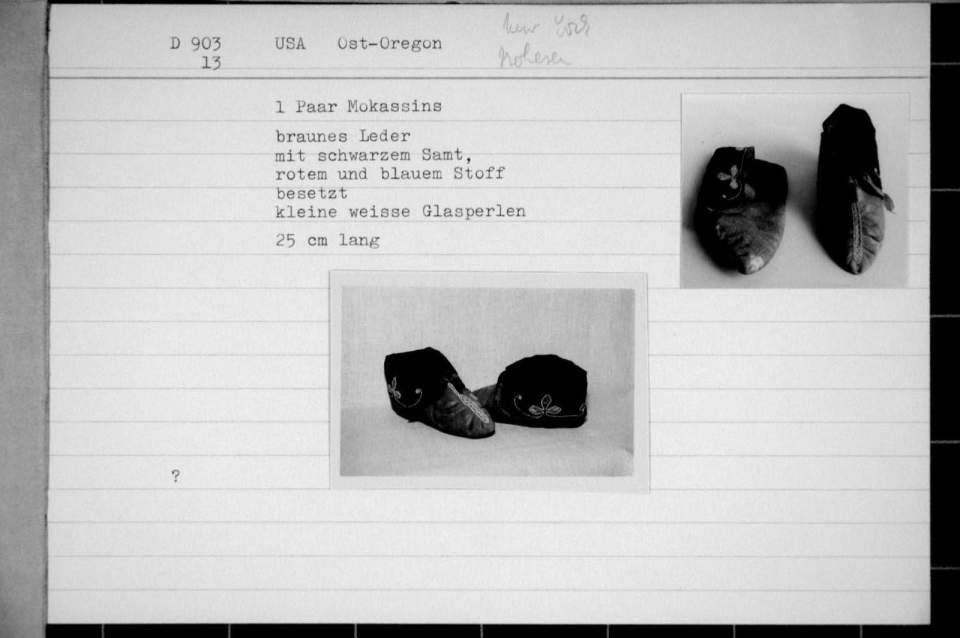 D 903 USA Ost-Oregon New York
13 Mohesen
1 Paar Mokassins
braunes Leder
mit schwarzem Samt,
rotem und blauem Stoff
besetzt
kleine weisse Glasperlen
25 cm lang
?